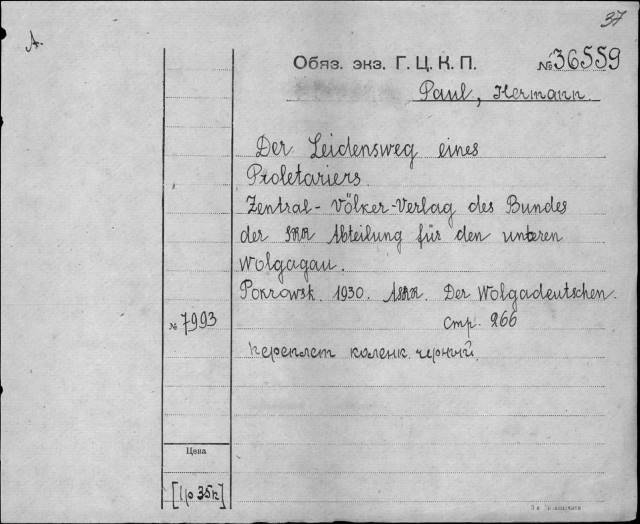 37
А.
Обяз. экз. Г. Ц. К. П. № 36559
Paul, Hermann.
Der Leidensweg eines
Proletariers.
Zentral-Völker-Verlag des Bundes
der SRR Abteilung für den unteren
Wolgagau.
Pokrowsk. 1930. ASRR. Der Wolgadeutschen.
№ 7993 стр. 266
переплет коленк. черный.
Цена
[1р 35к]